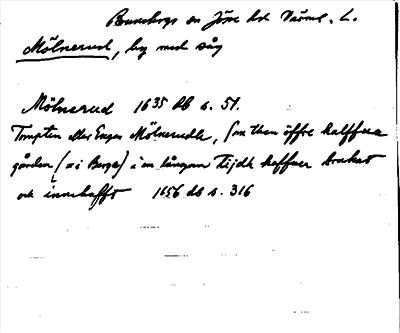 Brunskogs sn Jösse hd Värml. L.
Mölnerud, by med såg
Mölnerud 1635 db s. 51.
Tompten eller Engen Mölnerudh, som then öffre halffue
gården (a: i Berga) i en långan tijdh haffuer brukat
och innehafft 1656 db s. 316